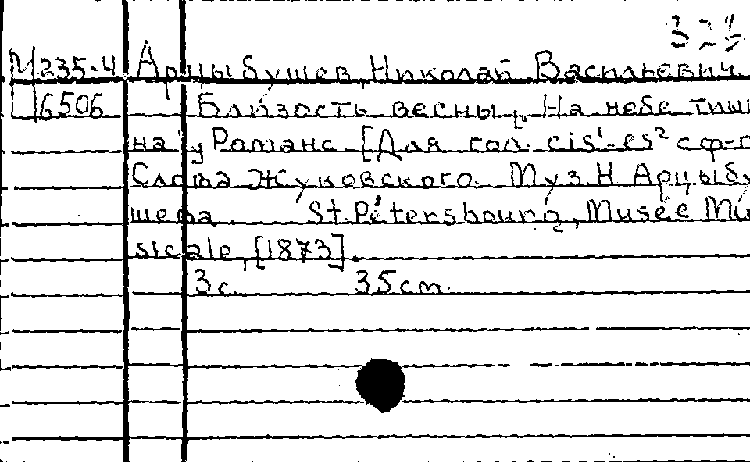 М 235-4 Арцыбушев, Николай Васильевич.
6506 Близость весны. [На небе тиши
на] Романс [Для гол. cis¹-es² с ф-п.
Слова Жуковского. Муз Н Арцыбу
шева. St. Pétersbourg, Musée Mu
sicale, [1873].
3 с. 35 cm.